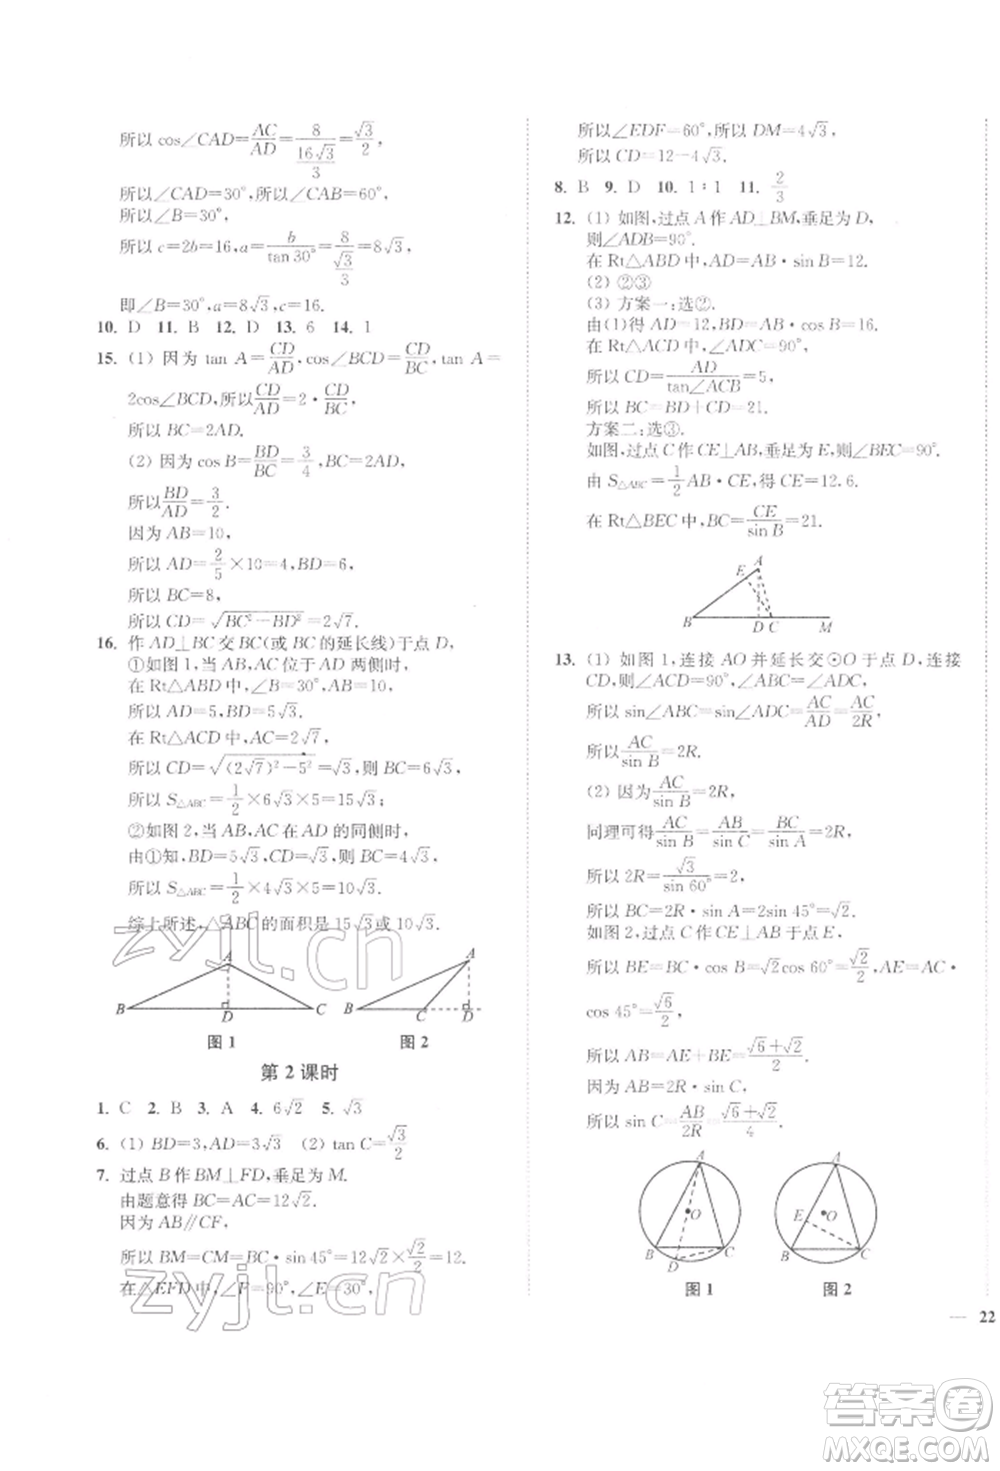 所以 cos∠CAD=AC/AD=8/(16√3/3)=√3/2,
所以∠CAD=30°,所以∠CAB=60°,
所以∠B=30°,
所以 c=2b=16,a=b/tan 30°=8/(√3/3)=8√3,
即∠B=30°,a=8√3,c=16.
10. D 11. B 12. D 13. 6 14. 1
15. (1) 因为 tan A=CD/AD,cos∠BCD=CD/BC,tan A=
2cos∠BCD,所以CD/AD=2·CD/BC,
所以 BC=2AD.
(2) 因为 cos B=BD/BC=3/4,BC=2AD,
所以BD/AD=3/2.
因为 AB=10,
所以 AD=2/5×10=4,BD=6,
所以 BC=8,
所以 CD=√(BC²-BD²)=2√7.
16. 作 AD⊥BC 交 BC(或 BC 的延长线)于点 D,
①如图 1,当 AB,AC 位于 AD 两侧时,
在 Rt△ABD 中,∠B=30°,AB=10,
所以 AD=5,BD=5√3.
在 Rt△ACD 中,AC=2√7,
所以 CD=√((2√7)²-5²)=√3,则 BC=6√3,
所以 S△ABC=1/2×6√3×5=15√3;
②如图 2,当 AB,AC 在 AD 的同侧时,
由①知,BD=5√3,CD=√3,则 BC=4√3,
所以 S△ABC=1/2×4√3×5=10√3.
综上所述,△ABC 的面积是 15√3 或 10√3.
A
B
D
C
图 1
A
B
C
D
图 2
第 2 课时
1. C 2. B 3. A 4. 6√2 5. √3
6. (1) BD=3,AD=3√3 (2) tan C=√3/2
7. 过点 B 作 BM⊥FD,垂足为 M.
由题意得 BC=AC=12√2.
因为 AB∥CF,
所以 BM=CM=BC·sin 45°=12√2×√2/2=12.
在△EFD 中,∠F=90°,∠E=30°,
zyjl.cn
zyjl.cn
所以∠EDF=60°,所以 DM=4√3,
所以 CD=12-4√3.
8. B 9. D 10. 1∶1 11. 2/3
12. (1) 如图,过点 A 作 AD⊥BM,垂足为 D,
则∠ADB=90°.
在 Rt△ABD 中,AD=AB·sin B=12.
(2) ②③
(3) 方案一:选②.
由(1)得 AD=12,BD=AB·cos B=16.
在 Rt△ACD 中,∠ADC=90°,
所以 CD=AD/tan∠ACB=5,
所以 BC=BD+CD=21.
方案二:选③.
如图,过点 C 作 CE⊥AB,垂足为 E,则∠BEC=90°.
由 S△ABC=1/2AB·CE,得 CE=12.6.
在 Rt△BEC 中,BC=CE/sin B=21.
A
E
B
D
C
M
13. (1) 如图 1,连接 AO 并延长交⊙O 于点 D,连接
CD,则∠ACD=90°,∠ABC=∠ADC,
所以 sin∠ABC=sin∠ADC=AC/AD=AC/2R,
所以AC/sin B=2R.
(2) 因为AC/sin B=2R,
同理可得AC/sin B=AB/sin C=BC/sin A=2R,
所以 2R=√3/sin 60°=2,
所以 BC=2R·sin A=2sin 45°=√2.
如图 2,过点 C 作 CE⊥AB 于点 E,
所以 BE=BC·cos B=√2cos 60°=√2/2,AE=AC·
cos 45°=√6/2,
所以 AB=AE+BE=(√6+√2)/2.
因为 AB=2R·sin C,
所以 sin C=AB/2R=(√6+√2)/4.
A
O
B
D
C
图 1
A
E
O
B
C
图 2
— 22
答案卷
MXQE.COM